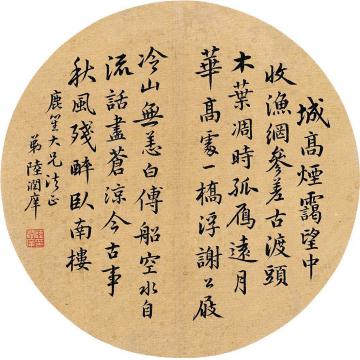 城高煙靄望中
收漁網參差古渡頭
木葉凋時孤雁遠月
華高處一橋浮謝公屐
冷山無恙白傅船空水自
流話盡蒼涼今古事
秋風殘醉臥南樓
鹿笙大兄法正
弟陸潤庠